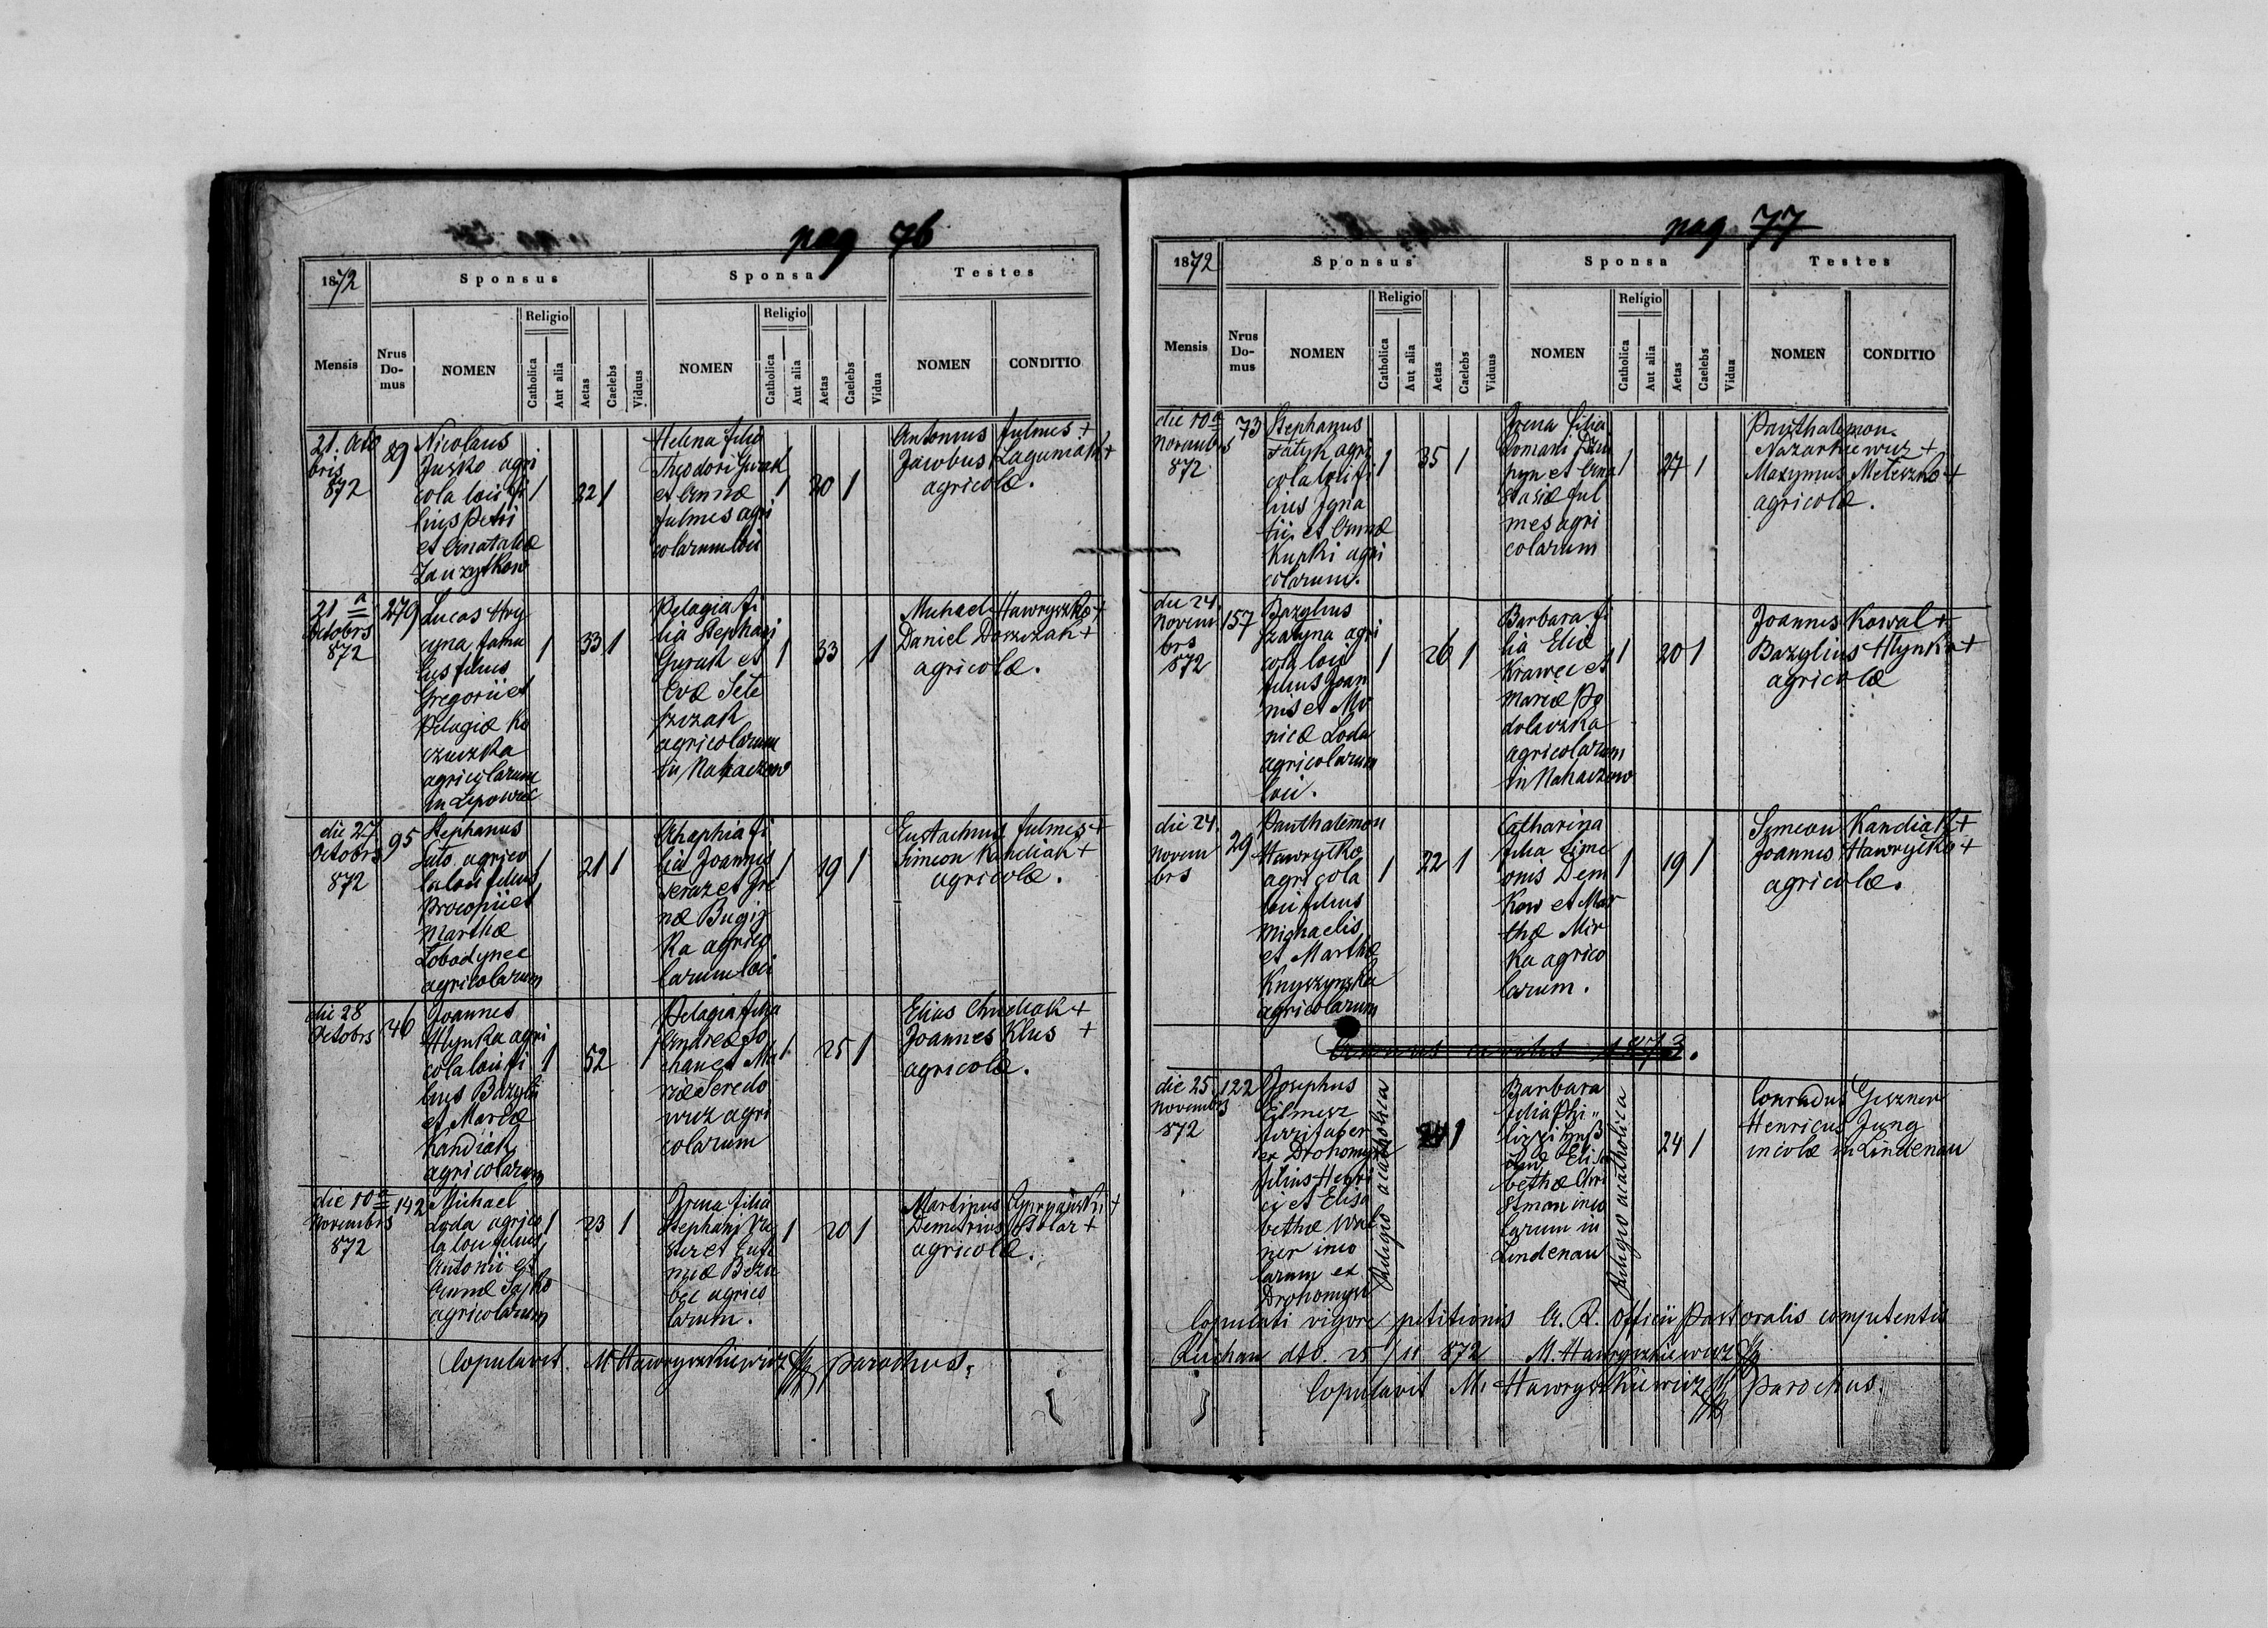 pag 76
1872
Sponsus
Sponsa
Testes
Mensis
Nrus Do-mus
NOMEN
Religio
Catholica
Aut alia
Aetas
Caelebs
Viduus
NOMEN
Religio
Catholica
Aut alia
Aetas
Caelebs
Vidua
NOMEN
CONDITIO
21. Octo
bris
872
89
Nicolaus
Juzko agri
cola loci fi
lius Petri
et Anataliæ
1
22 1
Helena filia
Theodori Gurak
et Annæ
Julmes agri
colarum loci
1
20 1
Antonius Julmes +
Jacobus Lagumiak +
agricolæ.
21 a
Octobrs
872
279
Lucas Hry
cyna famu
lus filius
Gregorii et
Pelagiæ Ko
czuszka
agricolarum
in Lipowiec
1
33 1
Pelagia fi
lia Stephani
Gurak et
Evæ Sete
agricolarum
in Nahaczow
1
33 1
Michael Hawryszko +
Daniel Dorszak +
agricolæ.
die 27
Octobrs
872
95
Stephanus
Luto agrico
la loci filius
Procopii et
Marthæ
Lobodynec
agricolarum
1
21 1
Ahaphia fi
lia Joannis
Seraz et Ire
næ Bugij
ka agrico
larum loci
1
19 1
Eustachius Julmes +
Simeon Kandiak +
agricolæ.
die 28
Octobrs
46
Joannes
Hlynka agri
cola loci fi
lius Bazylii
et Mariæ
Kandiak
agricolarum
1
52 1
Pelagia filia
Andreæ So
chan et Ma
riæ Seredo
wicz agri
colarum
1
25 1
Elias Chudiak +
Joannes Klus +
agricolæ.
die 10a
Novembrs
872
142
Michael
Loda agrico
la loci filius
Antonii et
Annæ Sajko
agricolarum
1
23 1
Irena filia
Stephani
agrico
larum.
1
20 1
Martinus
Demetrius Stolar +
agricolæ.
Copulavit M. Hawryszkiewicz parochus.
pag 77
1872
Sponsus
Sponsa
Testes
Mensis
Nrus Do-mus
NOMEN
Religio
Catholica
Aut alia
Aetas
Caelebs
Viduus
NOMEN
Religio
Catholica
Aut alia
Aetas
Caelebs
Vidua
NOMEN
CONDITIO
die 10a
Novembrs
872
73
Stephanus
Fatyk agri
cola loci fi
lius Igna
tii et Annæ
Kupki agri
colarum.
1
35 1
Irena filia
Romani
et Ana
stasiæ Jul
mes agri
colarum
1
27 1
Panthalemon
Nazarkiewicz +
Maxymus Meteszko +
agricolæ.
die 24.
Novem
brs
872
157
Bazylius
agri
cola loci
filius Joan
nis et Mo
nicæ Loda
agricolarum
loci.
1
26 1
Barbara fi
lia Eliæ
Krawec et
Mariæ Po
agricolarum
in Nahaczow
1
20 1
Joannes Kowal +
Bazylius Hlynka +
agricolæ
die 24.
Novem
brs
29
Panthalemon
Hawrytko
agricola
loci filius
Michaelis
et Marthæ
Knyszynska
agricolarum
1
22 1
Catharina
filia Sime
onis Dem
kow et Mar
thæ Mir
ka agrico
larum.
1
19 1
Symeon Kandiak +
Joannes Hawrytko +
agricolæ.
1873.
die 25
Novembrs
872
122
Josephus
ferrifaber
ex Drohomysl
filius Henri
ci et Elisa
bethæ Wal
ner inco
larum ex
Drohomysl
Religio acatholica
24 1
Barbara
filia Phi"
lippi
Elisa
bethæ Chri
stman inco
larum in
Lindenau
Religio acatholica
24 1
Conradus Geszner
Henricus Jung
incolæ in Lindenau
Copulati vigore petitionis A. R. Officii Pastoralis competentis
dto. 25/11 872 M. Hawryszkiewicz
Copulavit M. Hawryszkiewicz parochus.